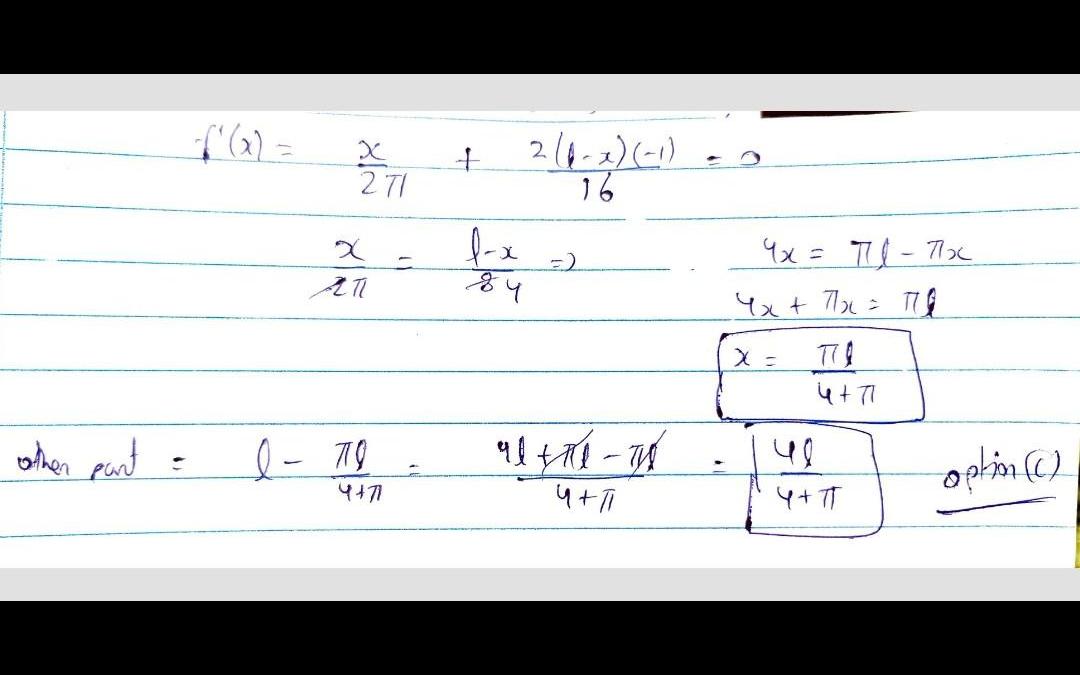 f'(x) = x/2π + 2(l-x)(-1)/16 = 0
x/2π = l-x/8 4 => 4x = πl - πx
4x + πx = πl
x = πl/4+π
other part = l - πl/4+π = 4l + πl - πl/4+π = 4l/4+π option (C)